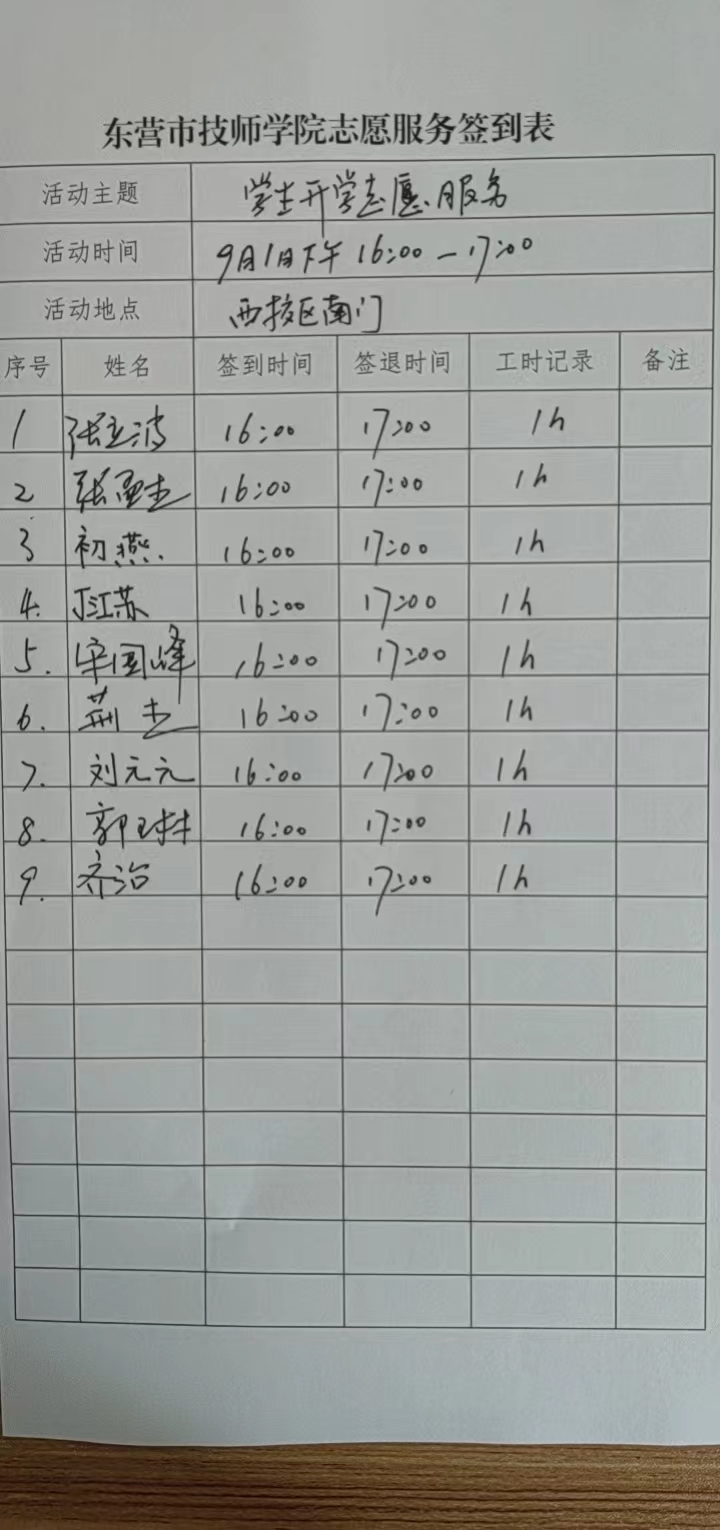 东营市技师学院志愿服务签到表
活动主题 学生开学志愿服务
活动时间 9月1日下午 16:00 — 17:00
活动地点 西校区南门
序号 姓名 签到时间 签退时间 工时记录 备注
1 张立波 16:00 17:00 1h
2 张孟杰 16:00 17:00 1h
3 初燕 16:00 17:00 1h
4. 江苏 16:00 17:00 1h
5. 国峰 16:00 17:00 1h
6. 荆杰 16:00 17:00 1h
7. 刘元元 16:00 17:00 1h
8. 郭琳 16:00 17:00 1h
9. 乔治 16:00 17:00 1h